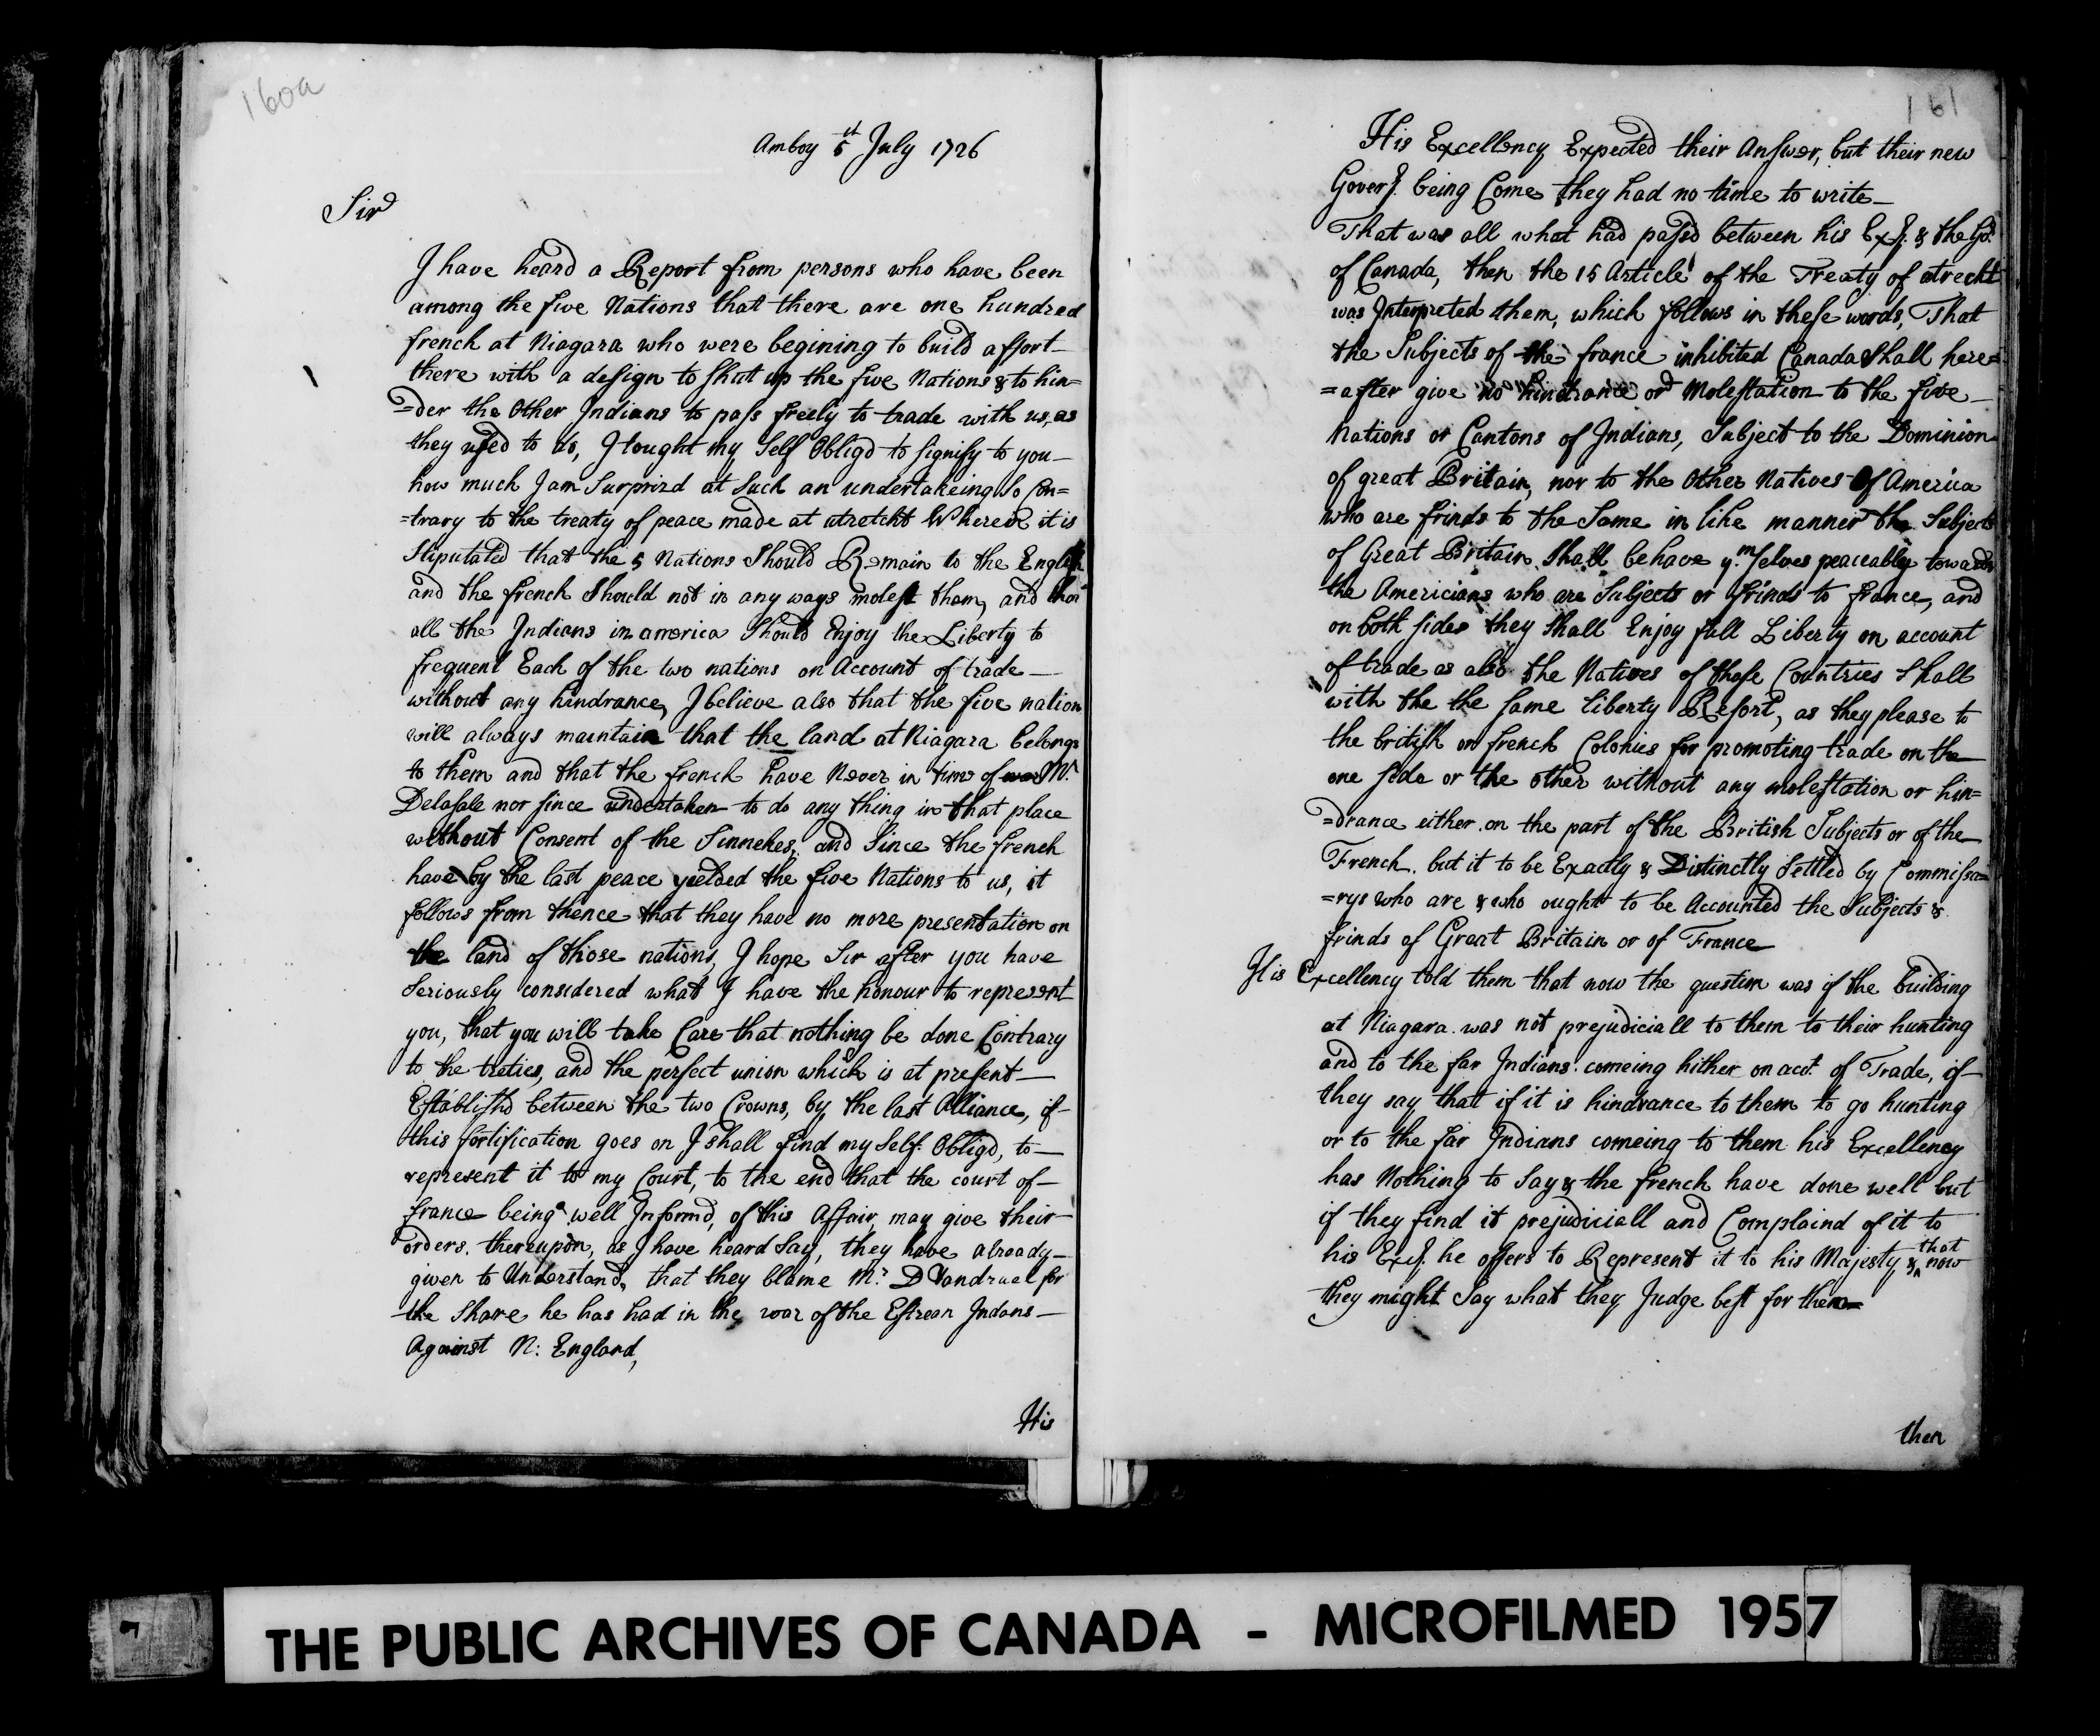 160a
Amboy 5 July 1726
Sir
I have heard a Report from persons who have been
among the five Nations that there are one hundred
french at Niagara who were begining to build a ffort
there with a design to shut up the five Nations & to hin=
=der the Other Indians to pass freely to trade with us, as
they used to do, I tought my Self Obligd to signify to you
how much I am Surprizd at Such an undertakeing So Con=
=trary to the treaty of peace made at utrecht Wherein it is
Stiputated that the 5 Nations Should Remain to the English
and the french Should not in any ways molest them, and that
all the Indians in america Should Enjoy the Liberty to
frequent Each of the two nations on Account of trade
without any hindrance, I believe also that the five nation
will always maintain that the land at Niagara belongs
to them and that the french have Never in time of Mr.
Delasale nor since undertaken to do any thing in that place
without Consent of the Sinnekes, and Since the french
have by the last peace yielded the five Nations to us, it
follows from thence that they have no more presentation on
the land of those nations, I hope Sir after you have
Seriously considered what I have the honour to represent
you, that you will take Care that nothing be done Contrary
to the treties, and the perfect union which is at present
Establishd between the two Crowns, by the last Alliance, if
this fortification goes on I shall find my Self Obligd, to
represent it to my Court, to the end that the court of
france being well Informd, of this Affair, may give their
orders. thereupon, as I have heard Say, they have already
given to Understand, that they blame Mr. D Vandruel for
the Share he has had in the war of the Estrean Indans
Against N: England,
His
161
His Excellency Expected their Answer, but their new
Goverr. being Come they had no time to write
That was all what had passd between his Exy. & the Go.
of Canada, then the 15 Article of the Treaty of utrecht
was Interpreted them, which follows in these words, That
the Subjects of the france inhibited Canada Shall here=
=after give no hindrance or Molestation to the five
Nations or Cantons of Indians, Subject to the Dominion
of great Britain, nor to the Other Natives Of America
who are frinds to the Same in like manner the Subjects
of Great Britain Shall behave ym. selves peaceably towards
the Americians who are Subjects or frinds to france, and
on both sides they Shall Enjoy full Liberty on account
of trade as also the Natives of those Countries Shall
with the the same liberty Resort, as they please to
the british or french Colonies for promoting trade on the
one side or the other without any molestation or hin=
=drance either on the part of the British Subjects or of the
French. but it to be Exactly & Distinctly Settled by Commissa=
=rys who are & who ought to be Accounted the Subjects &
frinds of Great Britain or of France
His Excellency told them that now the question was if the building
at Niagara was not prejudiciall to them to their hunting
and to the far Indians comeing hither on acct. of Trade, if
they say that if it is hindrance to them to go hunting
or to the far Indians comeing to them his Excellency
has Nothing to Say & the french have done well but
if they find it prejudiciall and Complaind of it to
his Exy. he offers to Represent it to his Majesty & that now
they might Say what they Judge best for them=
then
THE PUBLIC ARCHIVES OF CANADA - MICROFILMED 1957